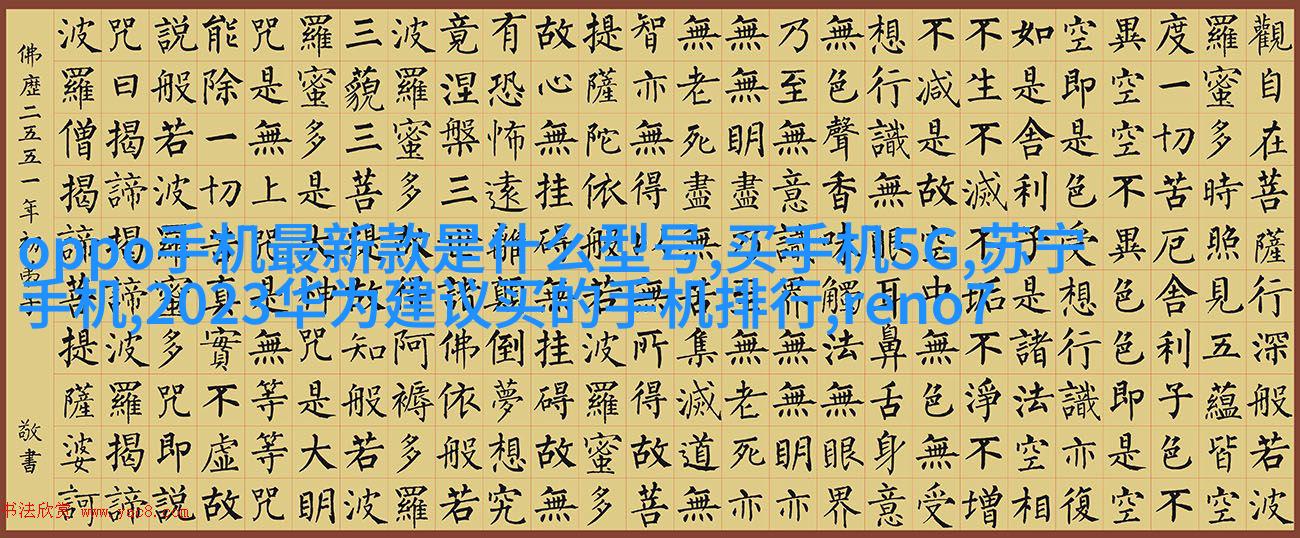 觀自在菩薩行深般若波
羅蜜多時照見五蘊皆空
度一切苦厄舍利子色不
異空空不異色色即是空
空即是色受想行識亦復
如是舍利子是諸法空相
不生不滅不垢不淨不增
不減是故空中無色無受
想行識無眼耳鼻舌身意
無色聲香味觸法無眼界
乃至無意識界無無明亦
無無明盡乃至無老死亦
無老死盡無苦集滅道無
智亦無得以無所得故菩
提薩陀依般若波羅蜜多
故心無挂碍無挂碍故無
有恐怖遠離顛倒夢想究
竟涅槃三世諸佛依般若
波羅蜜多故得阿褥多羅
三藐三菩提故知般若波
羅蜜多是大神咒是大明
咒是無上咒是無等等咒
能除一切苦真實不虛故
說般若波羅蜜多咒即說
咒曰揭諦揭諦波羅揭諦
波羅僧揭諦菩提薩婆訶
佛歷二五五一年 敬書
oppo手机最新款是什么型号,买手机5G,苏宁
手机,2023华为建议买的手机排行,reno7
书法欣赏 www.yac8.com